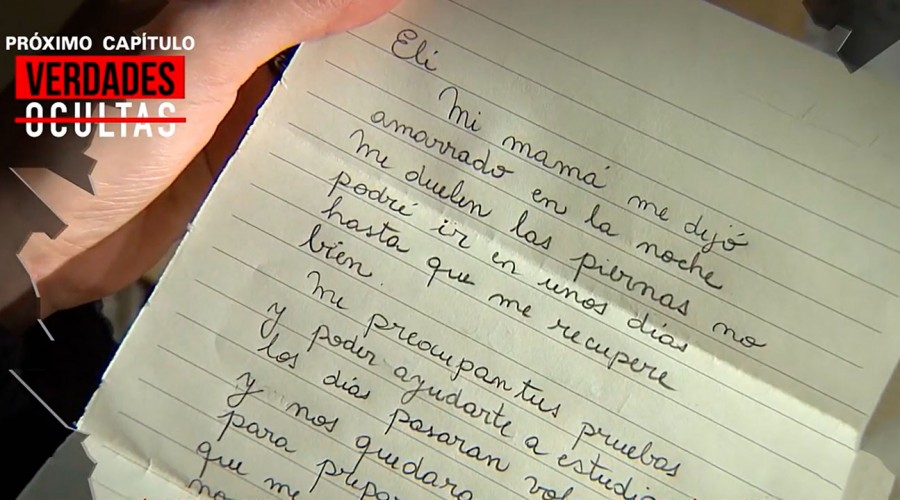 PRÓXIMO CAPÍTULO
VERDADES
OCULTAS
Eli
Mi mamá me dejó
amarrado en la noche
Me duelen las piernas no
podré ir en unos días
hasta que me recupere
bien.
Me preocupan tus pruebas
y poder ayudarte a
los días pasaran
y nos quedara
para
que me
no